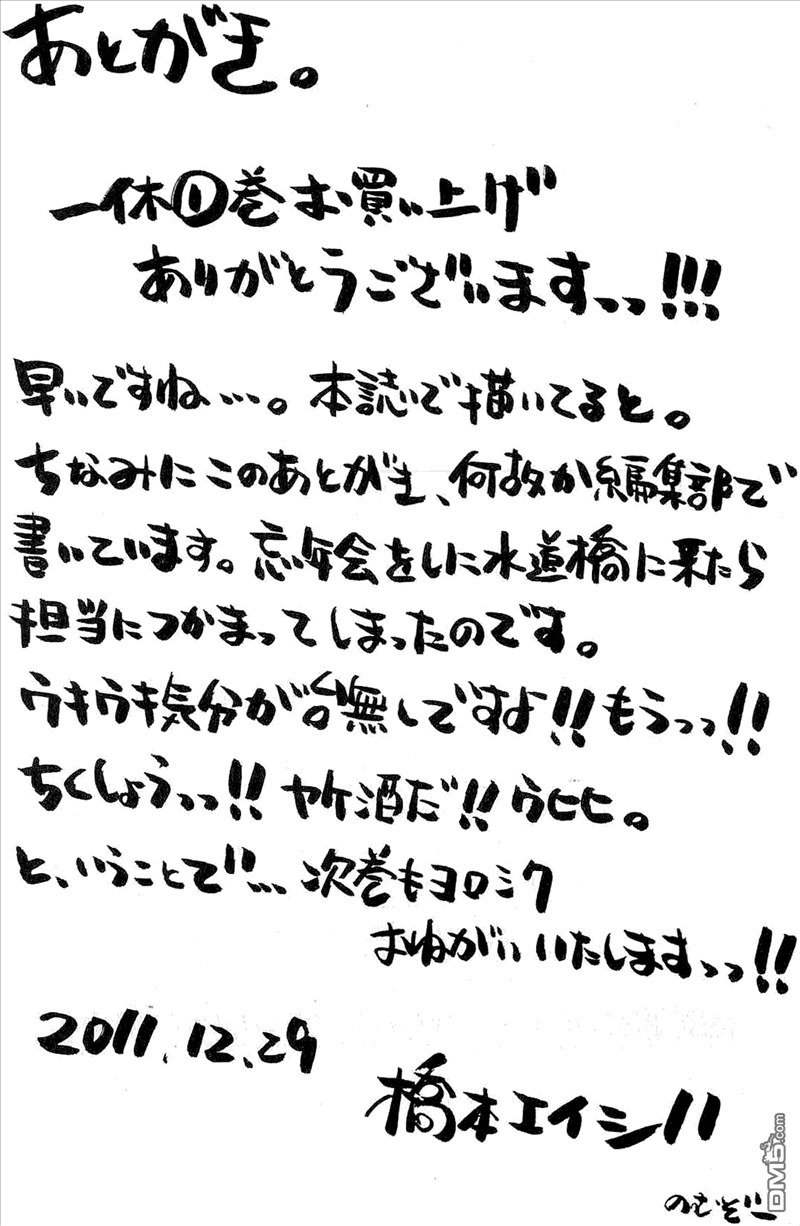 あとがき。
一休⑪巻お買い上げ
ありがとうございますっっ!!!
早いですね…。本誌で描いてると。
ちなみにこのあとがき、何故か編集部で
書いています。忘年会をしに水道橋に来たら
担当につかまってしまったのです。
ウキウキ気分が台無しですよ!!もうっっ!!
ちくしょうっっ!!ヤケ酒だ!!ウヒヒ。
と、いうことで…次巻もヨロシク
おねがいいたしますっっ!!
2011.12.29
橋本エイジ
のむぞー
DM5.com